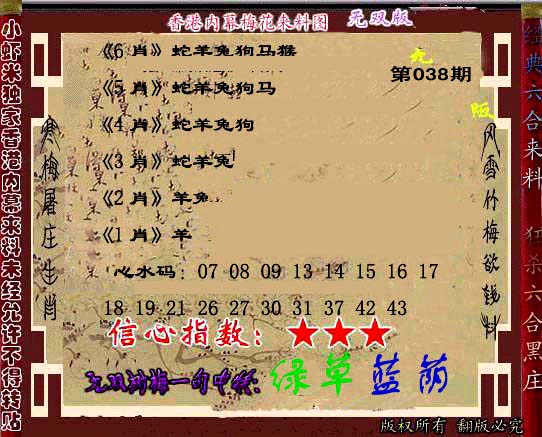 香港内幕梅花来料图 无双版
小虾米独家香港内幕来料未经允许不得转贴
经典六合来料 狂杀六合黑庄
九
版
第038期
寒梅屠庄生肖
风雪竹梅欲钱料
《6 肖》蛇羊兔狗马猴
《5 肖》蛇羊兔狗马
《4 肖》蛇羊兔狗
《3 肖》蛇羊兔
《2 肖》羊兔
《1 肖》羊
心水码：07 08 09 13 14 15 16 17
18 19 21 26 27 30 31 37 42 43
信心指数：★★★
无双剑梅一句中特：绿草蓝荫
版权所有 翻版必究